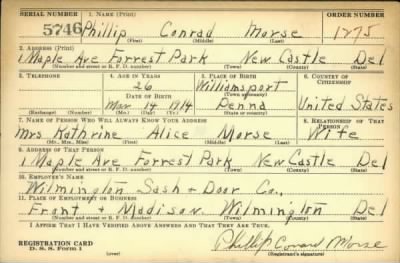 SERIAL NUMBER 1. NAME (Print) ORDER NUMBER
5746 Phillip Conrad Morse 1275
(First) (Middle) (Last)
2. ADDRESS (Print)
1 Maple Ave Forrest Park New Castle Del
(Number and street or R. F. D. number) (Town) (County) (State)
3. TELEPHONE 4. AGE IN YEARS 5. PLACE OF BIRTH 6. COUNTRY OF CITIZENSHIP
26 Williamsport
DATE OF BIRTH (Town or county)
Mar 14 1914 Penna United States
(Exchange) (Number) (Mo.) (Day) (Yr.) (State or country)
7. NAME OF PERSON WHO WILL ALWAYS KNOW YOUR ADDRESS 8. RELATIONSHIP OF THAT PERSON
Mrs Kathrine Alice Morse Wife
(Mr., Mrs., Miss) (First) (Middle) (Last)
9. ADDRESS OF THAT PERSON
1 Maple Ave Forrest Park New Castle Del
(Number and street or R. F. D. number) (Town) (County) (State)
10. EMPLOYER'S NAME
Wilmington Sash + Door Co.,
11. PLACE OF EMPLOYMENT OR BUSINESS
Front + Madison. Wilmington Del
(Number and street or R. F. D. number) (Town) (County) (State)
I AFFIRM THAT I HAVE VERIFIED ABOVE ANSWERS AND THAT THEY ARE TRUE.
REGISTRATION CARD Phillip Conrad Morse
D. S. S. Form 1 (over) (Registrant's signature)